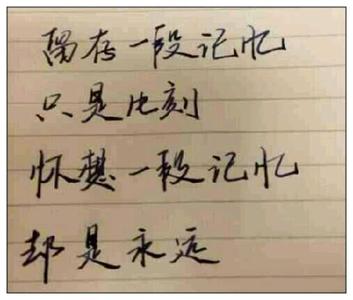 留存一段记忆
只是此刻
怀想一段记忆
却是永远